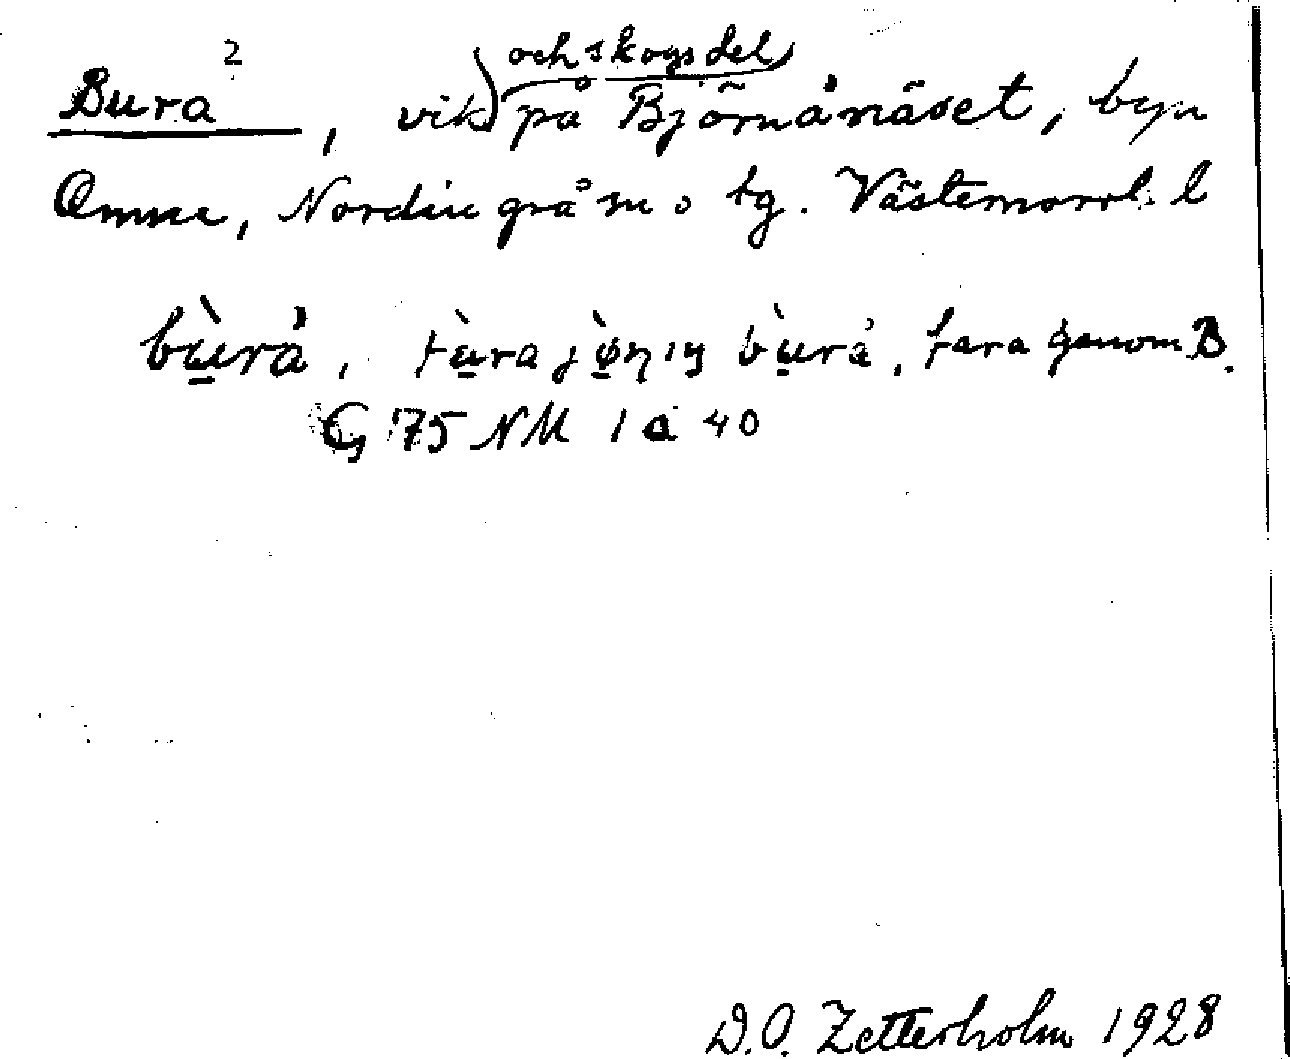 Bura ², vik och skogsdel på Björnånäset, byn
Omne, Nordingrå sn o tg. Västernorrl. l
bù̲rȧ, fù̲ra jø̲̀nɩŋ bù̲rȧ, fara genom B.
G 75 NM 1 a 40
D.O. Zetterholm 1928